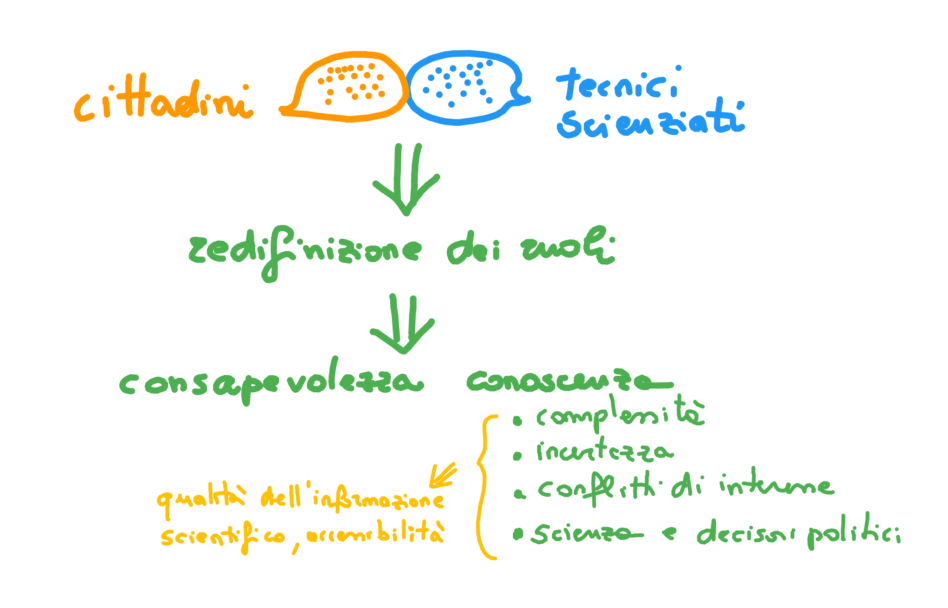 cittadini
tecnici
scienziati
redifinizione dei ruoli
consapevolezza conoscenza
• complessità
• incertezza
• conflitti di interesse
• scienza e decisori politici
qualità dell'informazione
scientifica, accessibilità